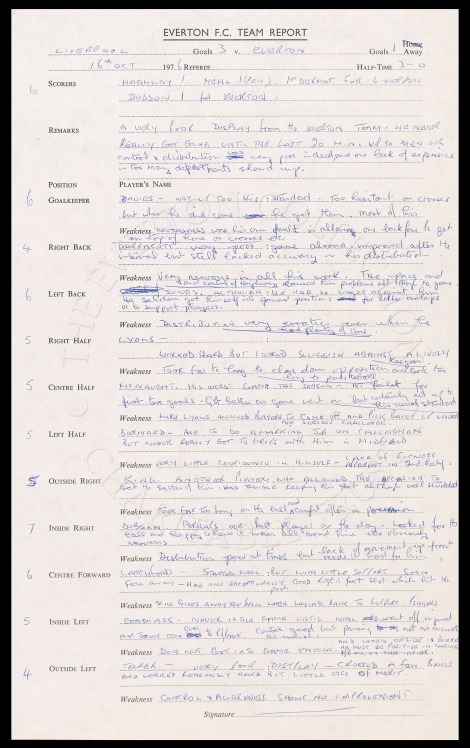 EVERTON F.C. TEAM REPORT
LIVERPOOL Goals 3 v. EVERTON Goals 1 Home Away
16th OCT 1976 REFEREE HALF-TIME 3-0
6 SCORERS HEIGHWAY 1 NEAL 1 (PEN). McDERMOT FOR LIVERPOOL
DOBSON 1 for EVERTON.
REMARKS A VERY POOR DISPLAY from the EVERTON TEAM - WE NEVER
REALLY GOT GOING UNTIL THE LAST 20 MIN. UP TO THEN OUR
control & distribution was very poor indeed and our lack of experience
in too many departments showed up.
POSITION PLAYER'S NAME
6 GOALKEEPER DAVIES - NOT UP TO HIS standard - Too hesitant on crosses
but when he did come he got them. most of his
Weakness nervousness was his own fault in allowing our back four to get
on top of him on crosses etc
4 RIGHT BACK very poor game altho' improved after the
interval but still lacked accuracy in his distribution
Weakness Very nervous in all his work. The pace and
and control of Heighway caused him problems all thro' the game
6 LEFT BACK JONES. He had no winger against him
He seldom got himself into forward positions for overlaps
or to support players.
Weakness DISTRIBUTION very erratic even when he
had plenty of time.
5 RIGHT HALF LYONS -
WORKED HARD BUT LOOKED SLUGGISH AGAINST A LIVELY
Keegan.
Weakness Took far too long to close down opposition and took too
long
5 CENTRE HALF McNAUGHT. HIS WORST GAME THIS SEASON - AT fault for
first two goals - Got better as game went on but certainly not up to
his usual standard
Weakness LIKE LYONS ALLOWED PLAYERS TO COME OFF AND PICK BALL UP UNDER
NO SERIOUS CHALLENGE.
5 LEFT HALF BERNARD - ASKED TO DO A MARKING JOB ON CALLAGHAN
BUT NEVER REALLY GOT TO GRIPS with Him in MIDFIELD
Weakness VERY LITTLE CONFIDENCE IN HIMSELF - LACK OF FITNESS
APPARENT IN 2nd Half.
5 OUTSIDE RIGHT KING. ANOTHER PLAYER WHO ALLOWED THE OCCASION TO
get the better of him - HAD trouble keeping his feet although well studded
Weakness Took far too long on the ball and caught often in possession
7 INSIDE RIGHT DOBSON. Perhaps our best player on the day - looked for the
ball and happy to have it when all around him was obviously
nervous
Weakness Distribution good at times but lack of movement up front
made it hard for him
6 CENTRE FORWARD LATCHFORD - STARTED WELL, BUT WITH LITTLE SUPPORT SOON
FELL AWAY - HAD ONE EXCEPTIONALLY GOOD Right foot shot which hit the
post
Weakness STILL GIVES AWAY THE BALL WHEN LAYING BACK TO SUPPORT PLAYERS
5 INSIDE LEFT GOODLASS - NEVER IN THE GAME UNTIL NEAL went off injured
and Jones came to left back. control good but passing not as accurate
as usual
Weakness DOES NOT GET INTO GAME ENOUGH AND WHEN OUTSIDE IS BLOCKED
HE MUST BE POSITIVE IN TAKING
4 OUTSIDE LEFT TELFER - VERY POOR DISPLAY - CROSSED A FEW BALLS
AND WORKED REASONABLY HARD BUT LITTLE ELSE OF MERIT
Weakness CONTROL & AWARENESS SHOWS NO IMPROVEMENT
Signature